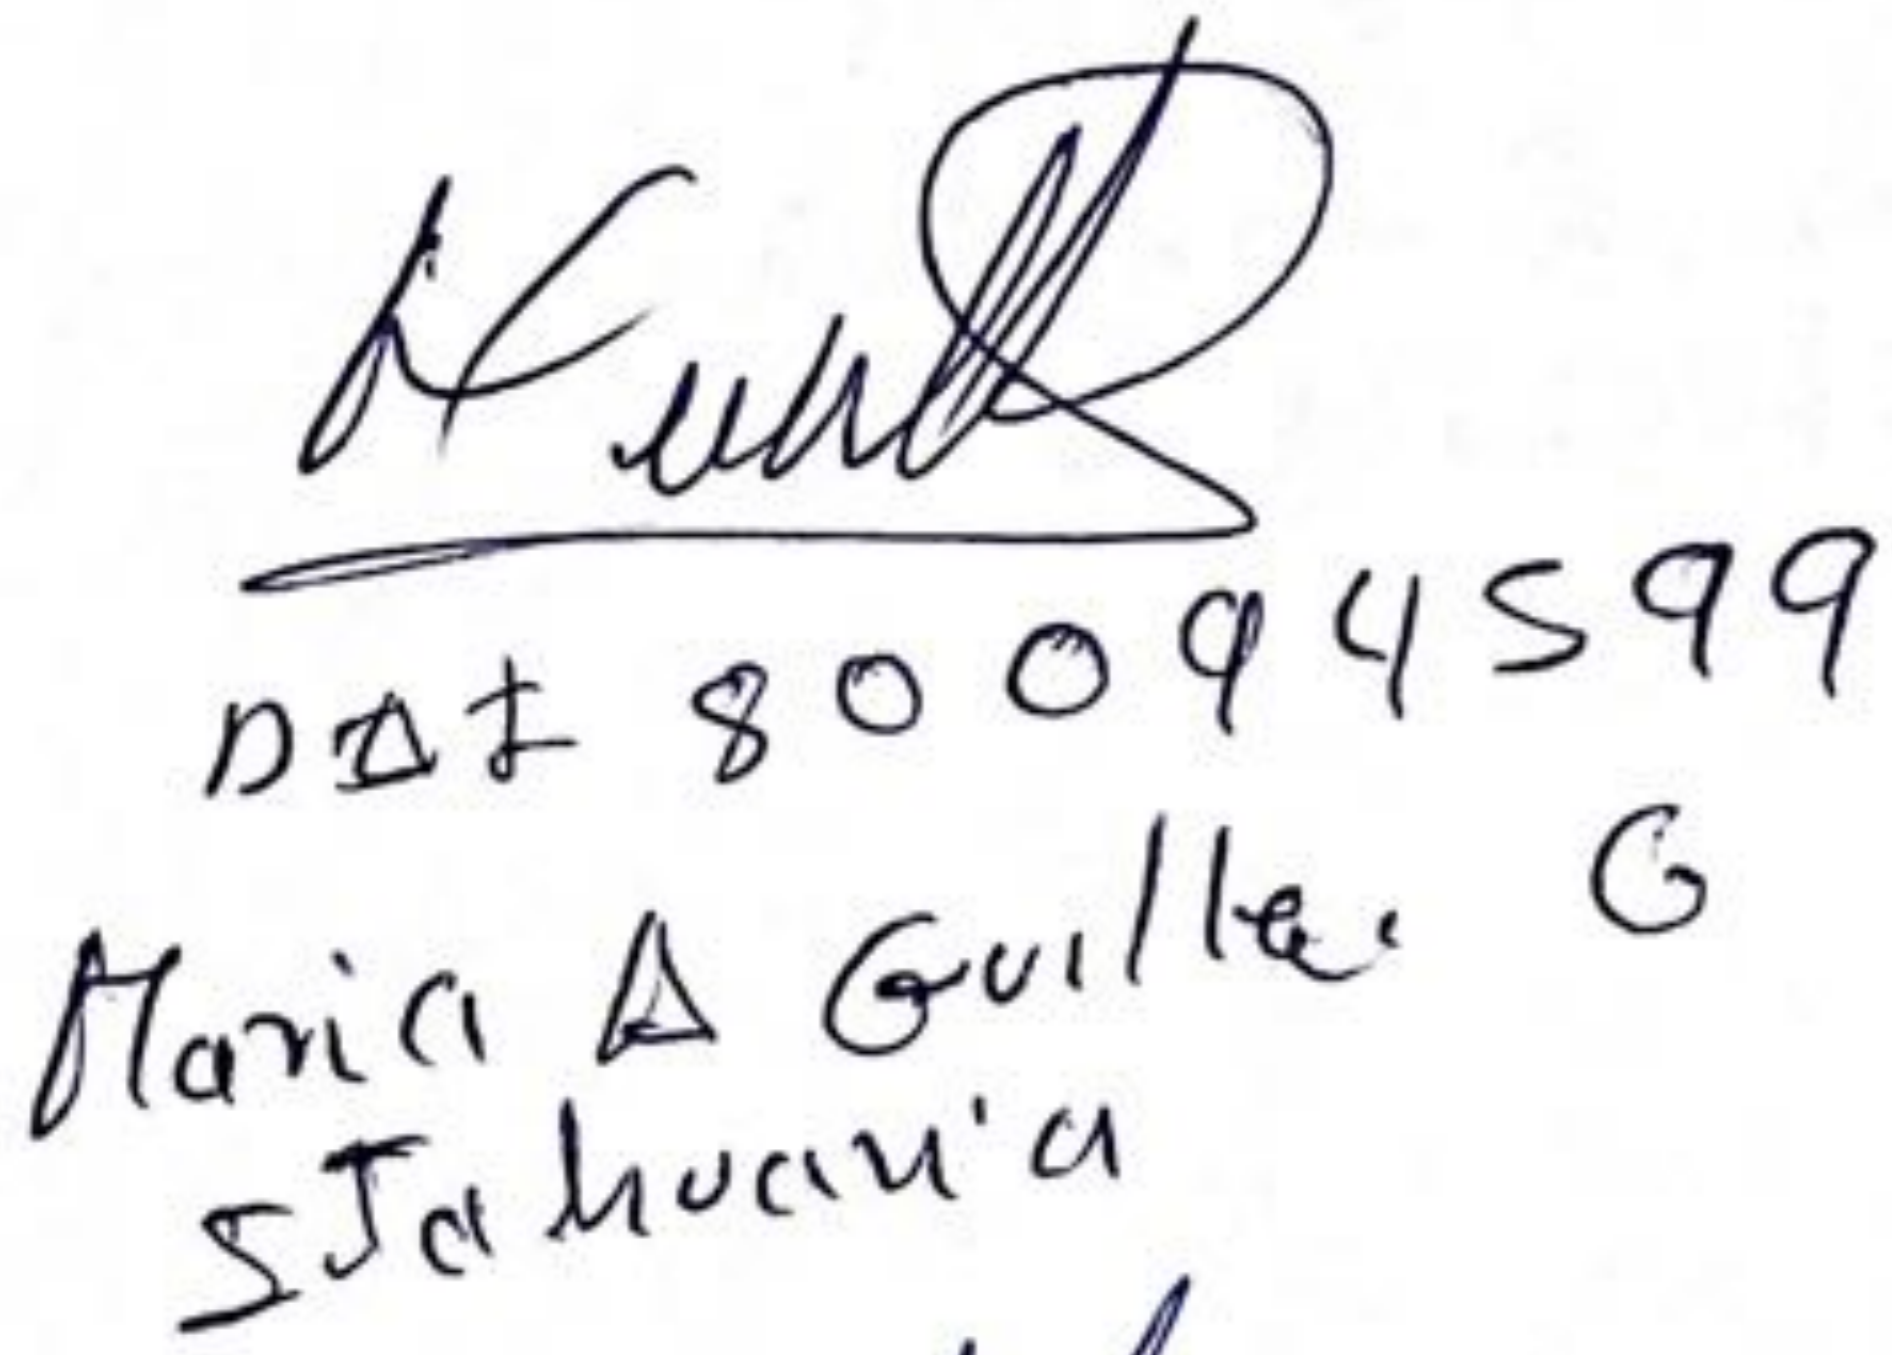 DAI 80094599
Maria A Guille. G
STahuaria